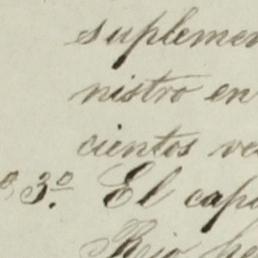 suplemen
nistro en
cientos ve
3.º El capi
Rio he